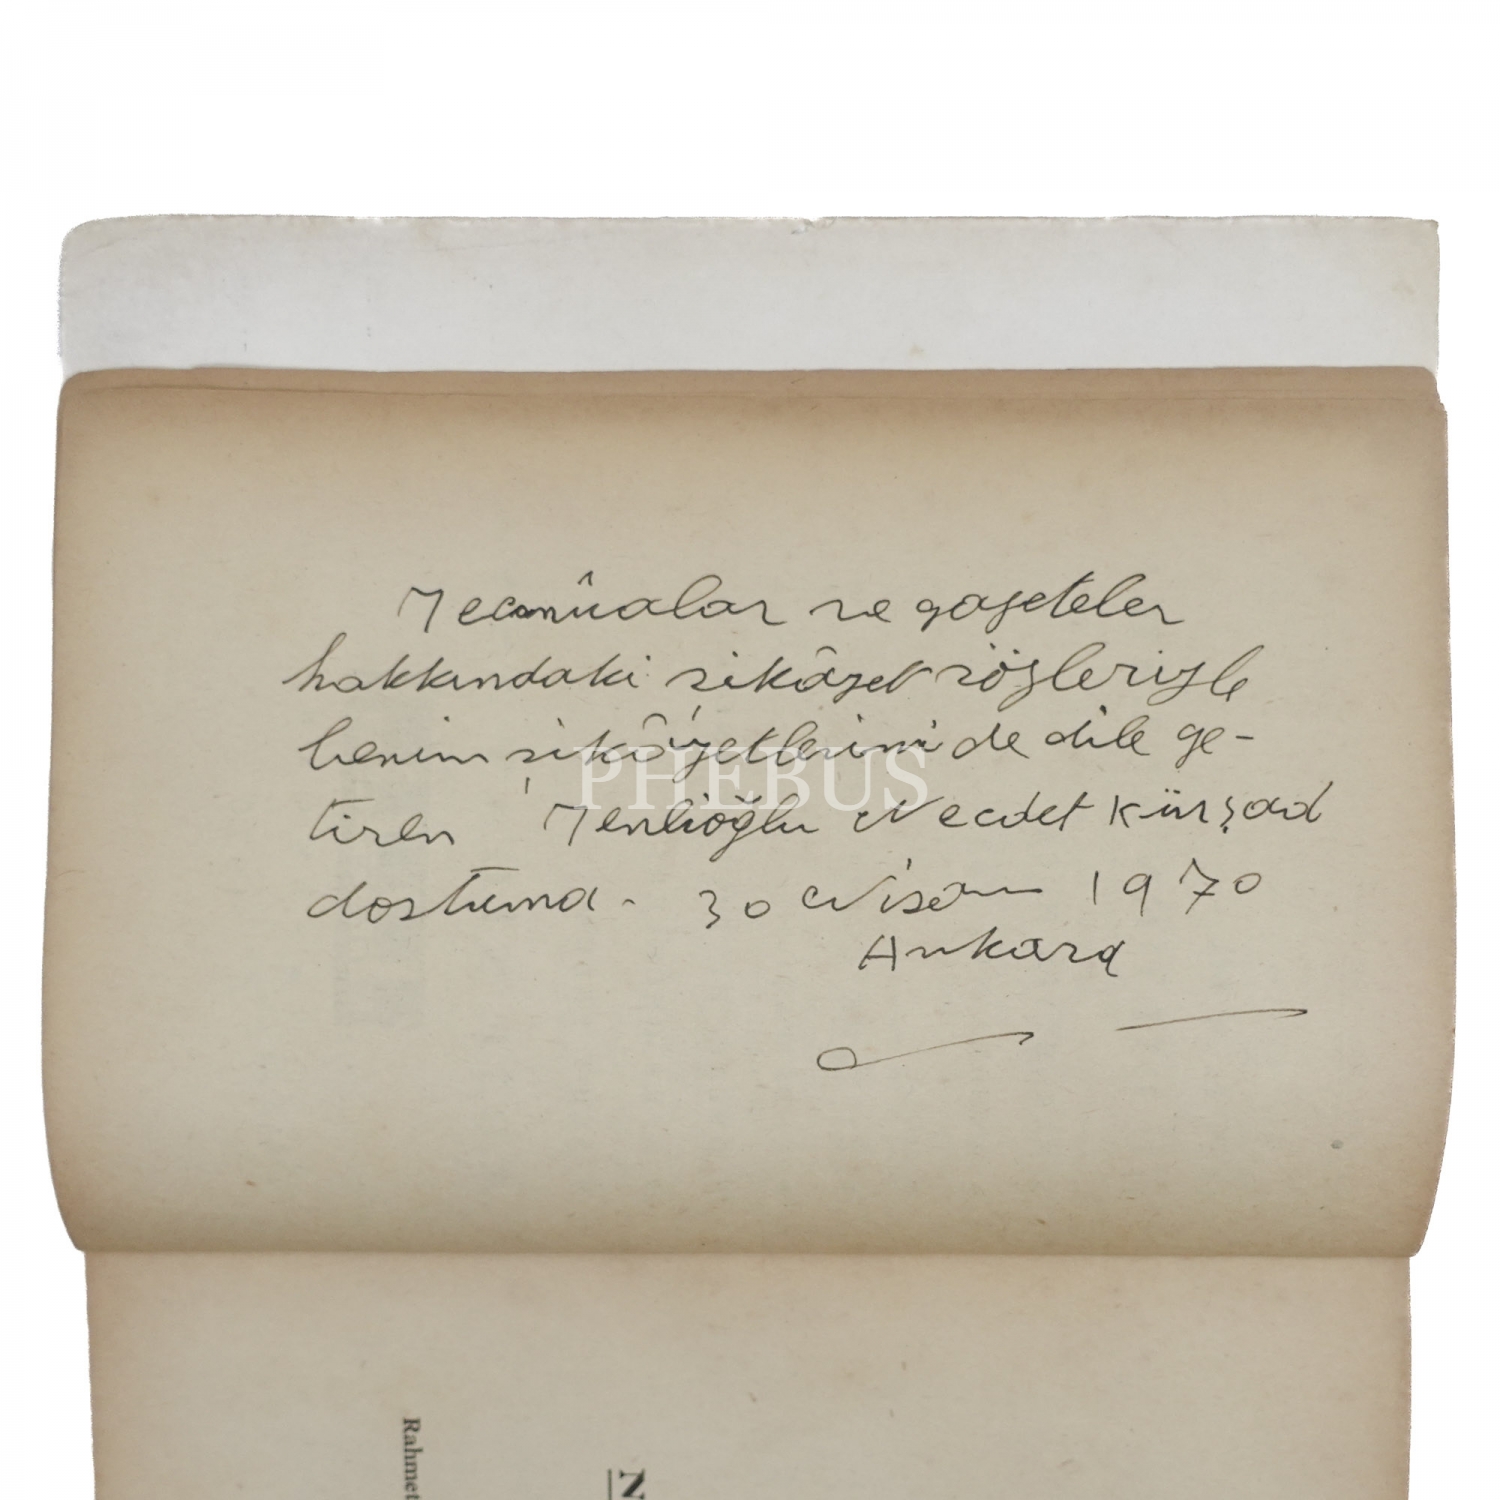 Mecmûalar ve gazeteler
hakkındaki şikâyet sözleriyle
benim şikâyetlerimi de dile ge-
tiren Menlioğlu Necdet Kürşad
dostuma. 30 Nisan 1970
Ankara
PHEBUS
Rahmet
N